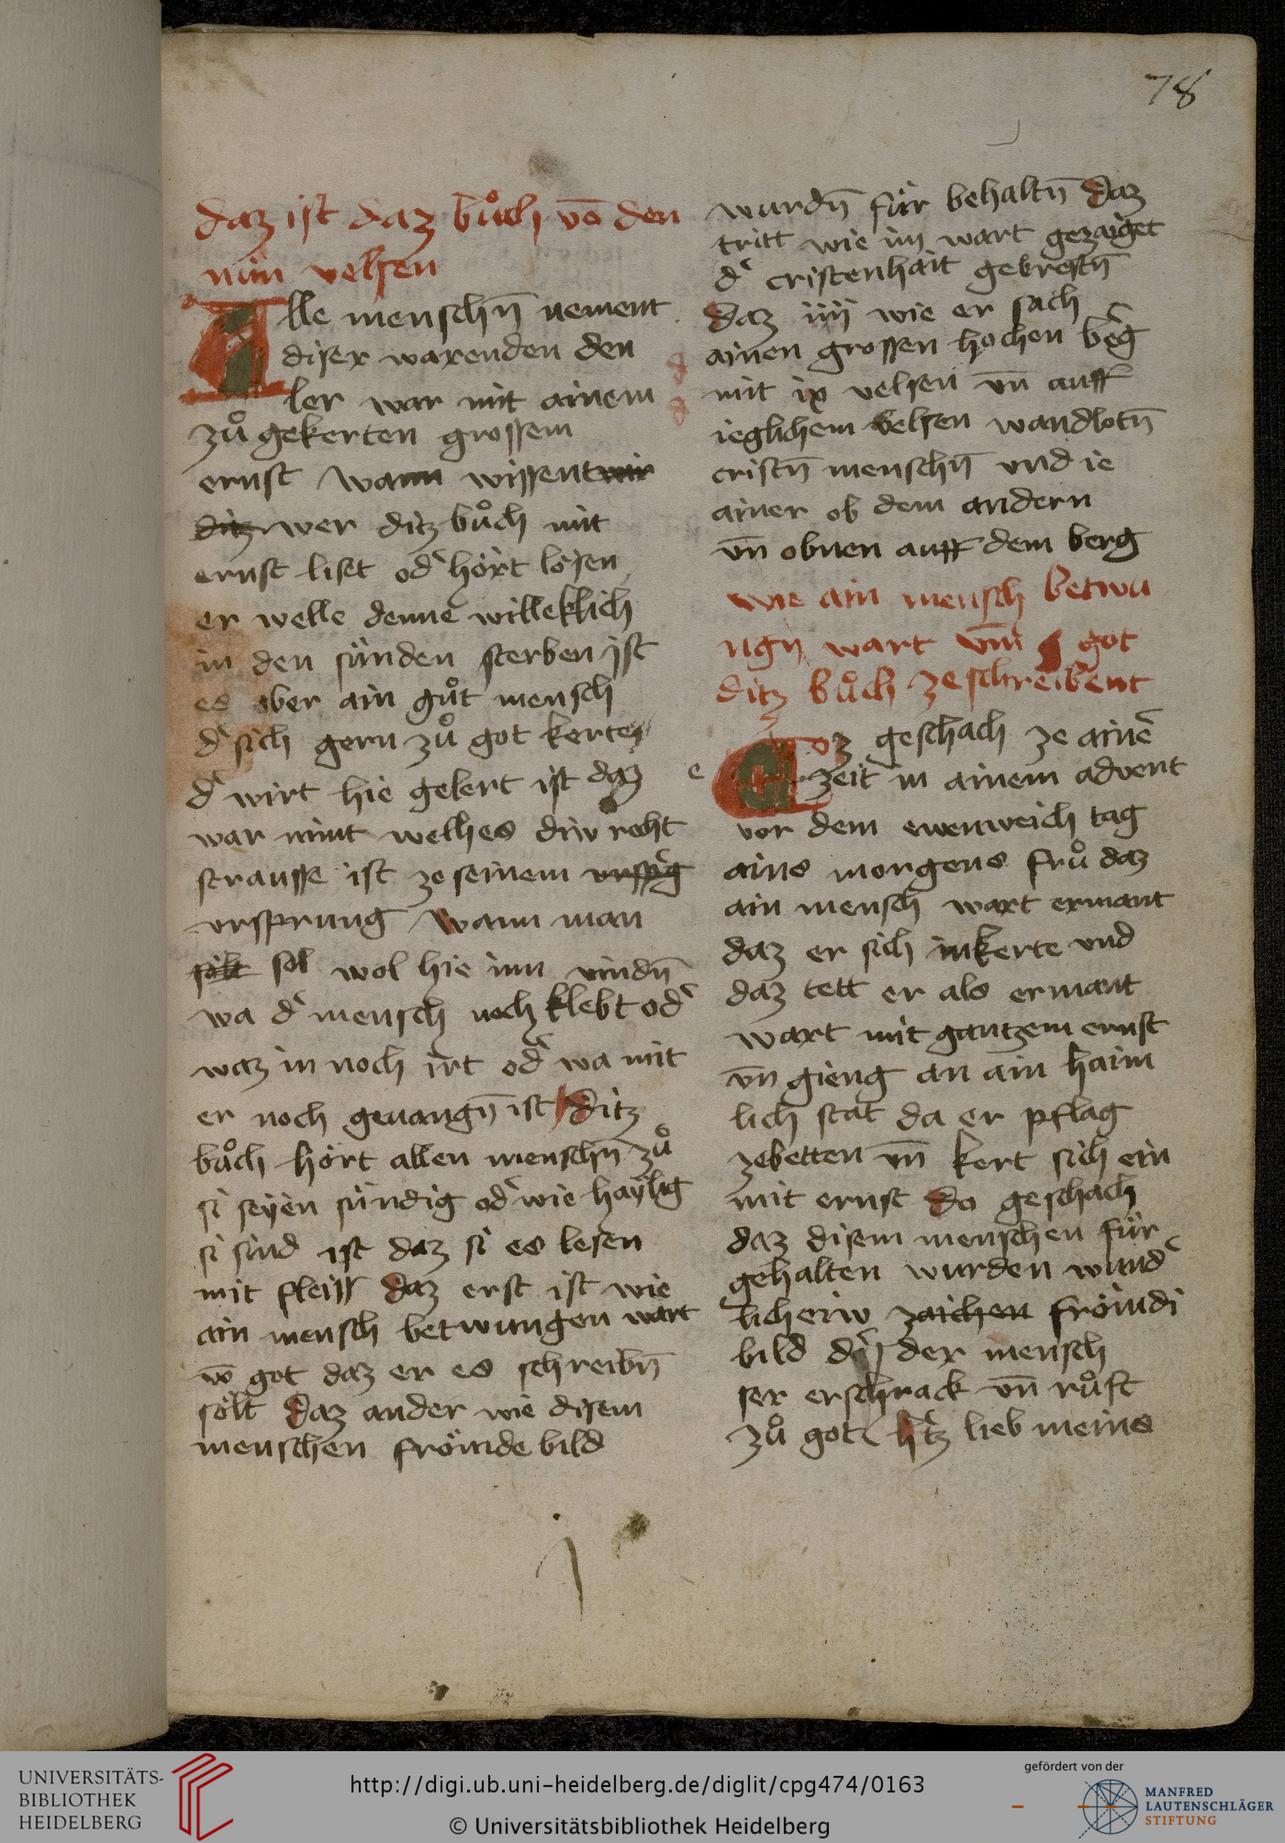 78
daz ist daz bůch vō den
nün velsen
Alle menschn̄ nement
diser warenden den
ler war mit ainem
zů gekerten grossem
ernst wann wissent wir
ditz wer ditz bůch mit
ernst list od͛ hört lösen
er welle denne willeklich
in den sünden sterben ist
es aber ain gůt mensch
d͛ sich gern zů got kerte
d͛ wirt hie gelert ist daz
war nimt welhes diw reht
strausse ist ze seinem
vrsprung wann man
sölt sol wol hie inn vindn̄
wa d͛ mensch noch klebt od͛
waz in noch irt od͛ wa mit
er noch geuangn̄ ist ditz
bůch hört allen menschn̄ zů
si seyen sündig od͛ wie haylig
si sind ist daz si es lesen
mit fleiss daz erst ist wie
ain mensch betwungen wart
vō got daz er es schreibn̄
sölt daz ander wie disem
menschen frömde bild
wurdn̄ für behaltn̄ daz
tritt wie im wart gezaiget
d͛ cristenhait gebrestn̄
daz iiij wie er sach
ainen grossen hochen be͛g
mit ix velsen vn̄ auff
ieglichem velsen wandlotn̄
cristn̄ menschn̄ vnd ie
ainer ob dem andern
vn̄ obnen auff dem berg
wie ain mensch betwu
ngn wart vm̄ got
ditz bůch ze schreibent
e
Ez geschach ze ainē
zeit in ainem advent
vor dem ewenweich tag
ains morgens frů daz
ain mensch wart ermant
daz er sich inkerte vnd
daz tett er als ermant
wart mit gantzem ernst
vn̄ gieng an ain haim
lich stat da er pflag
zebetten vn̄ kert sich ein
mit ernst do geschach
daz disem menschen für
gehalten wurden wund͛
licheiw zaichen frömdi
bild der mensch
ser erschrack vn̄ růft
zů got h͛tz lieb meins
UNIVERSITÄTS-
BIBLIOTHEK
HEIDELBERG
http://digi.ub.uni-heidelberg.de/diglit/cpg474/0163
© Universitätsbibliothek Heidelberg
gefördert von der
MANFRED
LAUTENSCHLÄGER
STIFTUNG